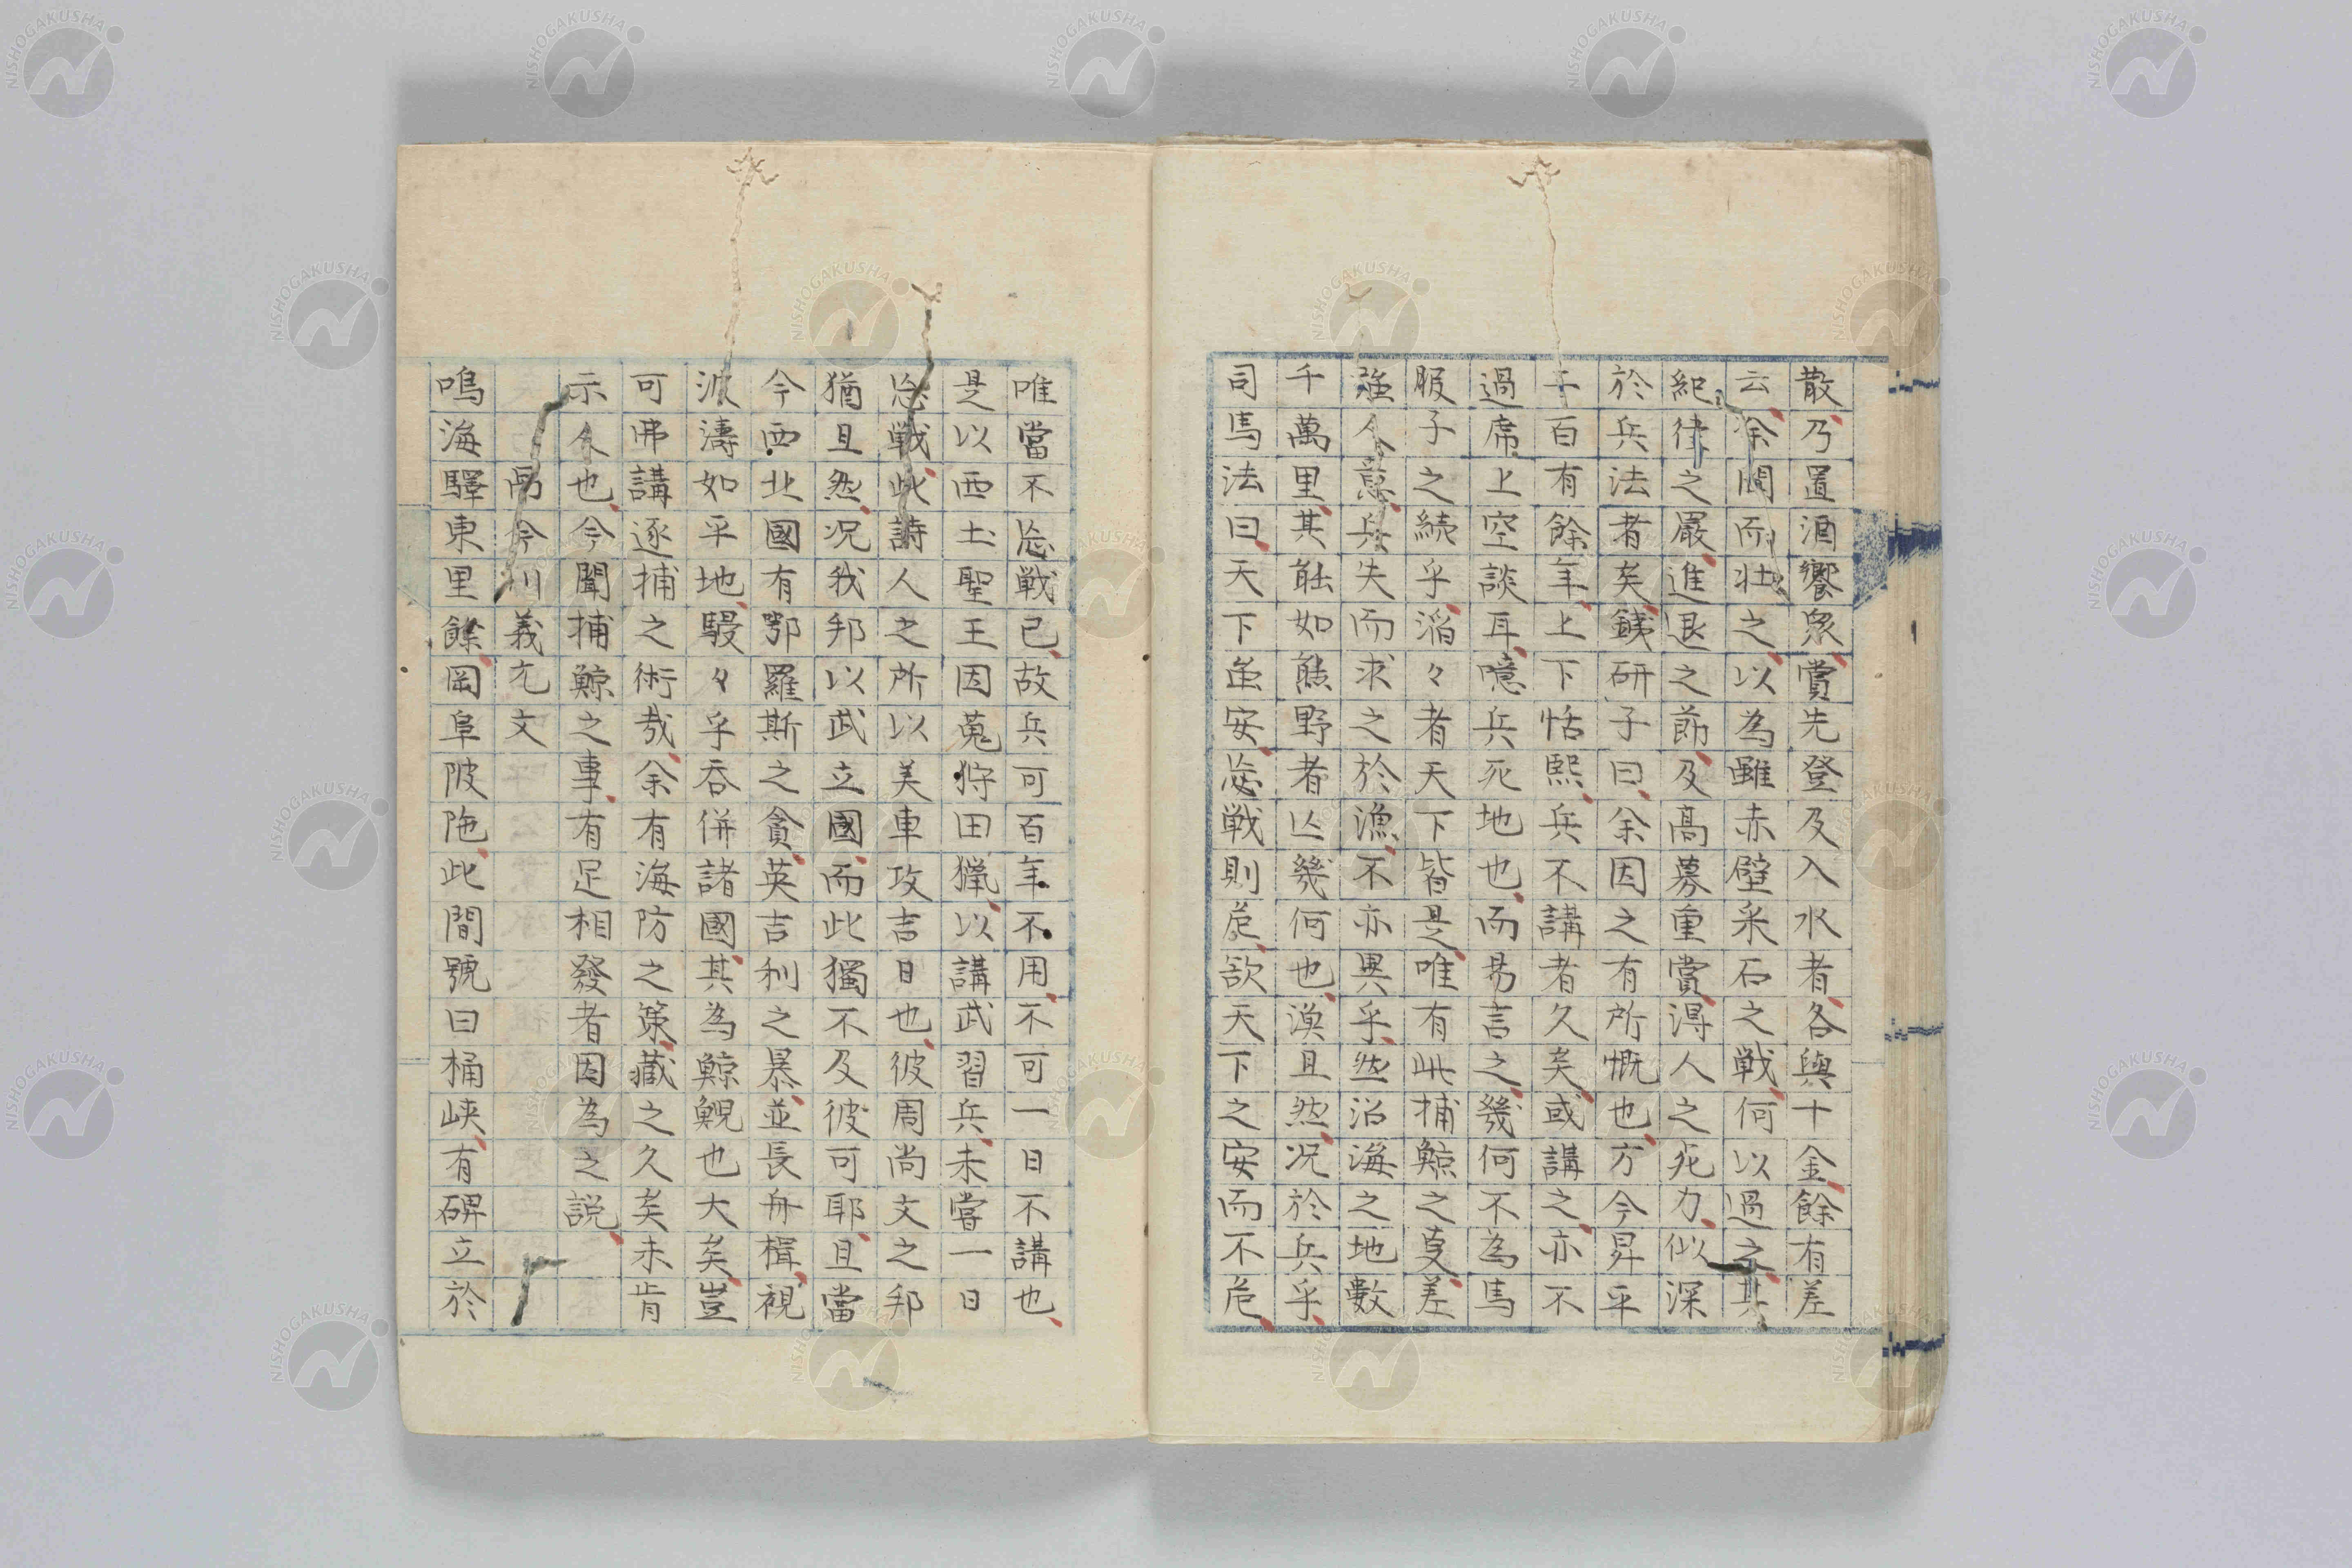 散乃置酒饗衆賞先登及入水者各與十金餘有差
云余聞而壮之以為雖赤壁采石之戦何以過之其
紀律之嚴進退之節及高募重賞得人之死力似深
於兵法者矣銕研子曰余因之有所慨也方今昇平
二百有餘年上下恬熙兵不講者久矣或講之亦不
過席上空談耳噫兵死地也而易言之幾何不為馬
服子之續乎滔々者天下皆是唯有此捕鯨之差
強人意兵失而求之於漁不亦異乎然沿海之地數
千萬里其能如熊野者亾幾何也漁且然况於兵乎
司馬法曰天下虽安忘戦則危欲天下之安而不危
唯當不忘戦已故兵可百年不用不可一日不講也
是以西土聖王因蒐狩田獵以講武習兵未嘗一日
忘戦此詩人之所以美車攻吉日也彼周尚文之邦
猶且然况我邦以武立國而此獨不及彼可耶且當
今西北國有鄂羅斯之貪英吉利之暴並長舟楫視
波濤如平地駸々乎吞併諸國其為鯨鯢也大矣豈
可弗講逐捕之術哉余有海防之策藏之久矣未肯
示人也今聞捕鯨之事有足相發者因為之説
吊今川義元文
鳴海驛東里餘岡阜陂陁此間號曰桶峡有碑立於
NISHOGAKUSHA